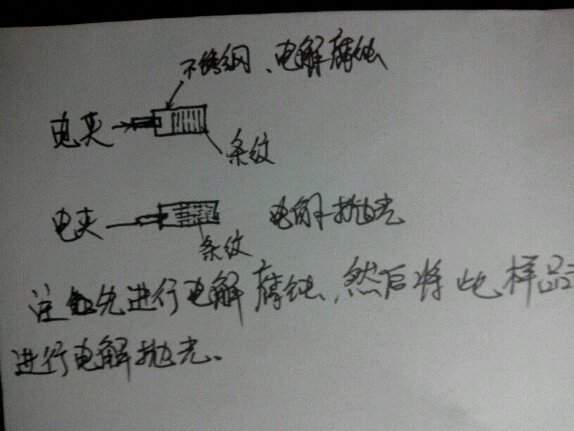 不锈钢、电解腐蚀
电夹
条纹
电夹
电解抛光
条纹
注 先进行电解腐蚀,然后将此样品
进行电解抛光。